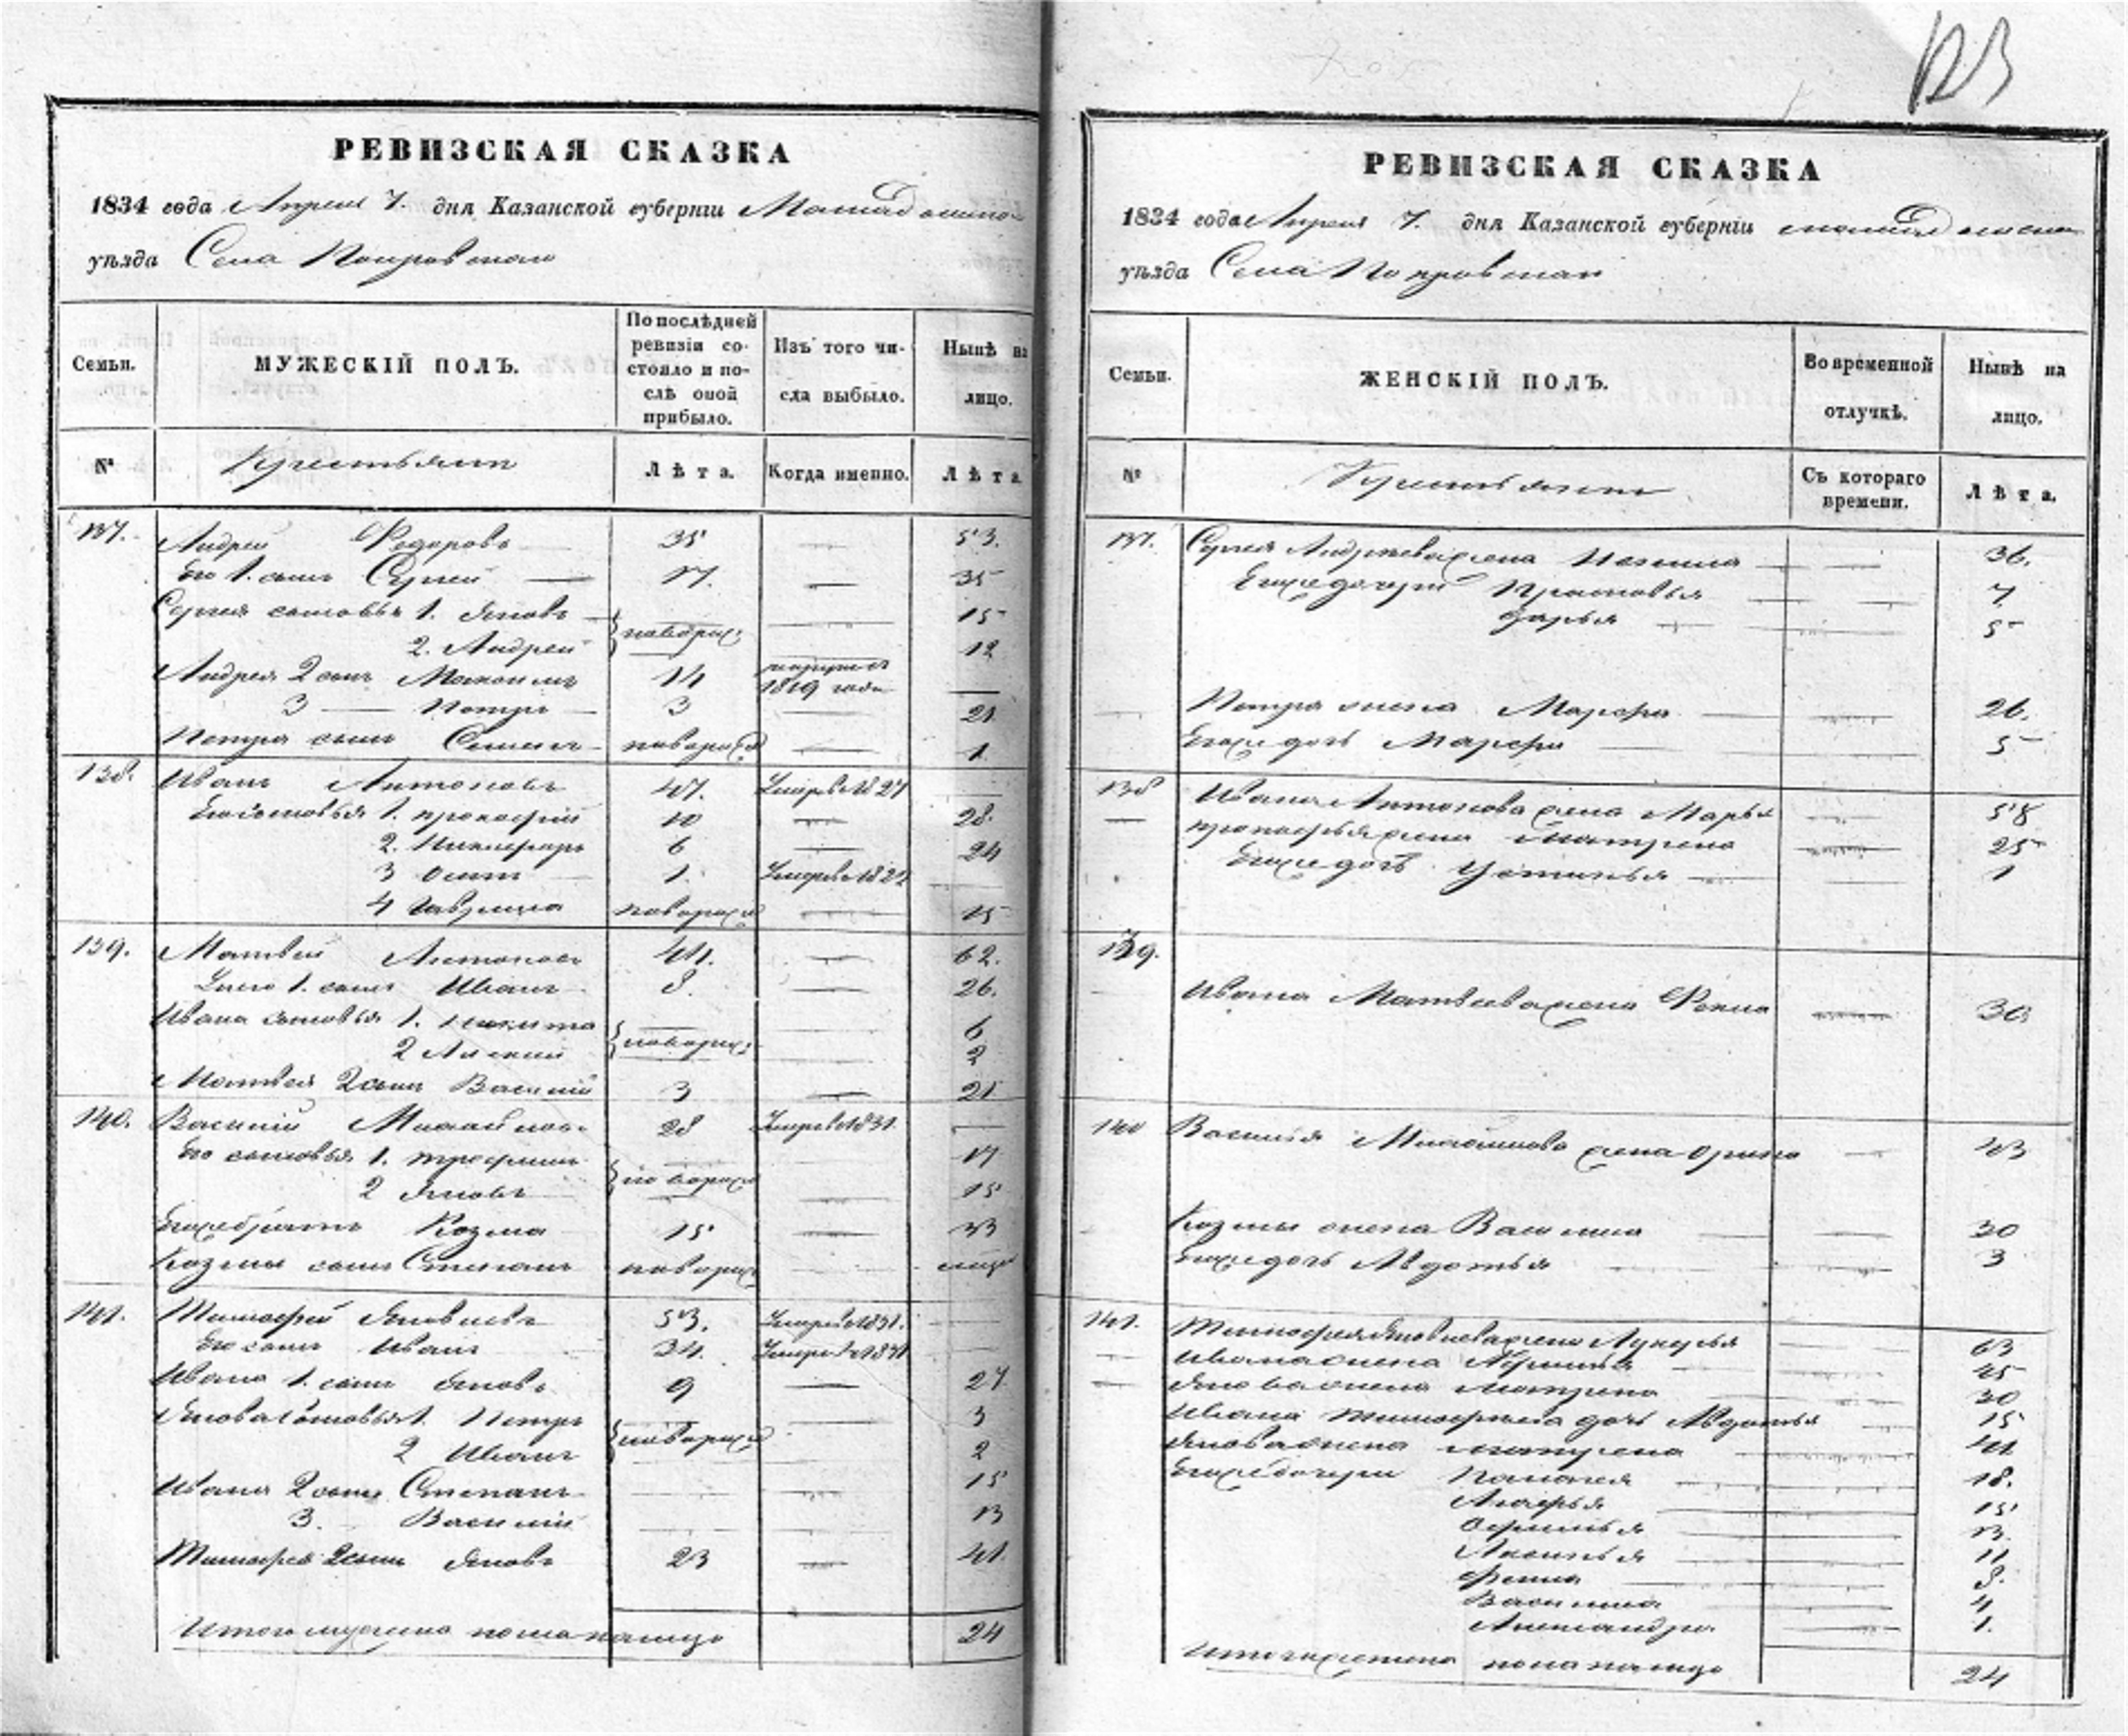 123
РЕВИЗСКАЯ СКАЗКА
1834 года Апреля 7. дня Казанской губерніи Мамадышска
уѣзда Села Покровскаго
Семьи.
МУЖЕСКІЙ ПОЛЪ.
По послѣдней ревизіи со-стояло и по-слѣ оной прибыло.
Изъ того чи-сла выбыло.
Нынѣ на лицо.
№
Крестьянъ
Лѣта.
Когда именно.
Лѣта
137. Андрей Федоровъ 35 — 53.
Его 1. сынъ Сергей — 17. — 35
Сергея сыновья 1. Яковъ — 15
2. Андрей новорож: — 12
Андрея 2 сынъ Максимъ 14 1819 года —
3 — Петръ — 3 — 21
Петра сынъ Семенъ новорож — 1
138. Иванъ Антоновъ 47. Умеръ в 1827 —
Его сыновья 1. Прокофій 10 — 28.
2. Никифоръ 6 — 24
3 Осипъ 1. Умеръ в 1822 —
4 Гаврила новорож — 15
139. Матвей Антоновъ 44. — 62.
У него 1. сынъ Иванъ 8. — 26.
Ивана сыновья 1. Никита — 6
2 Алексей новорож: — 2
Матвея 2 сынъ Василій 3 — 21
140. Василій Михайлов. 28 Умеръ в 1831. —
Его сыновья 1. Трофимъ — 17
2 Яковъ новорож — 15
Его же братъ Козма 15 — 33
Козмы сынъ Степанъ новорож —
141. Тимофей Яковлевъ 53. Умеръ в 1831. —
Его сынъ Иванъ 34. Умеръ в 1831 —
Ивана 1. сынъ Яковъ 9 — 27
Якова сыновья 1. Петръ — 3
2 Иванъ новорож — 2
Ивана 2 сынъ Степанъ — 15
3. Василій — 13
Тимофея 2 сынъ Яковъ 23 — 41
Итого мужеска пола на лицо 24
РЕВИЗСКАЯ СКАЗКА
1834 года Апреля 7. дня Казанской губерніи мамадышска
уѣзда Села Покровскаго
Семьи.
ЖЕНСКІЙ ПОЛЪ.
Во временной отлучкѣ.
Нынѣ на лицо.
№
Крестьянъ
Съ котораго времени.
Лѣта.
137. Сергея Андреева жена — 36.
Его же дочери Прасковья — 7
Дарья — 5
Петра жена Марфа — 26.
Его же дочь Марфа — 5
138 Ивана Антонова жена Марья — 58
Прокофья жена Матрена — 25
Его же дочь Устинья — 1
139.
Ивана Матвеева жена Фекла — 30
140 Василья Михайлова жена Орина — 43
Козмы жена Василиса — 30
Его же дочь Авдотья — 3
141. Тимофея Яковлева жена Лукерья — 63
Ивана жена — 45
Якова жена Матрена — 30
Ивана Тимофеева дочь Авдотья — 15
Якова жена Матрена — 41
Его же дочери Пелагея — 18.
— 15
Офимья — 13.
Аксинья — 11
Фекла — 8.
Василиса — 4
Александра — 1.
Итого женска пола на лицо 24